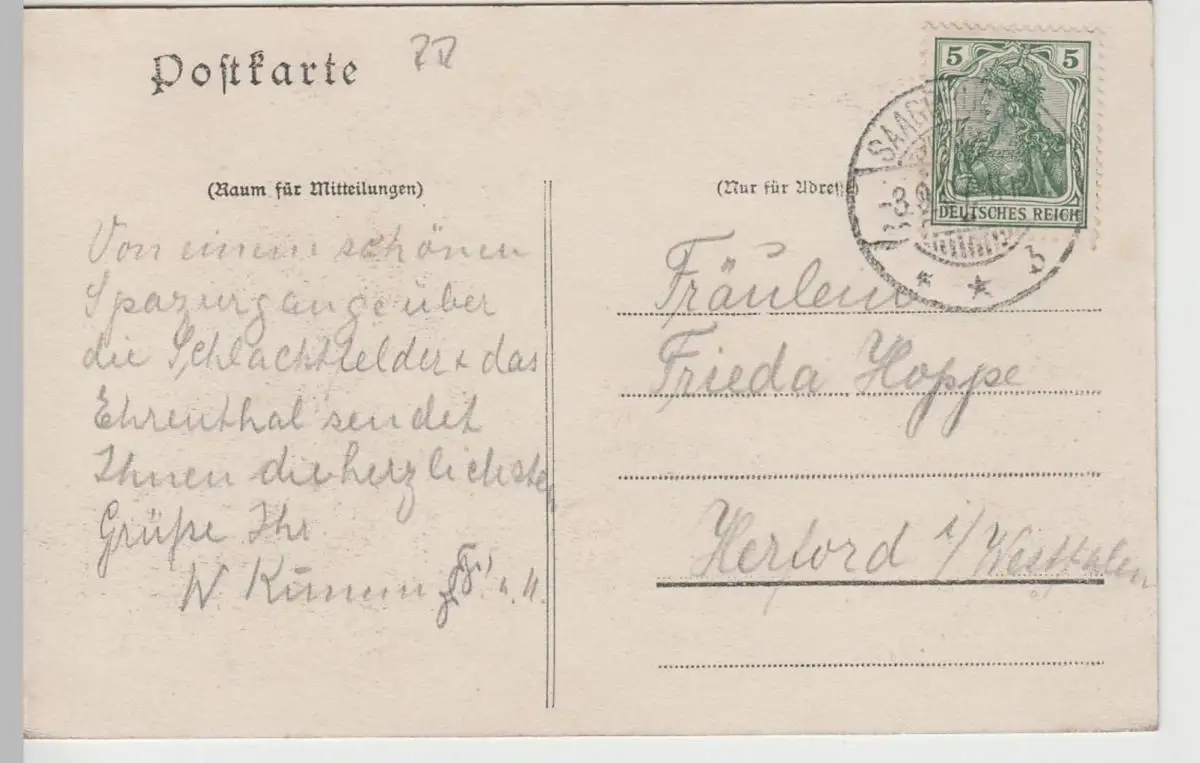 Postkarte
(Raum für Mitteilungen)
Von einem schönen
Spaziergange über
die Schlachtfelder + das
Ehrenthal sendet
Ihnen die herzlichsten
Grüße Ihr
W
(Nur für Adresse)
5 5
DEUTSCHES REICH
3
b
Fräulein
Frieda Hoppe
Herford i/Westfalen